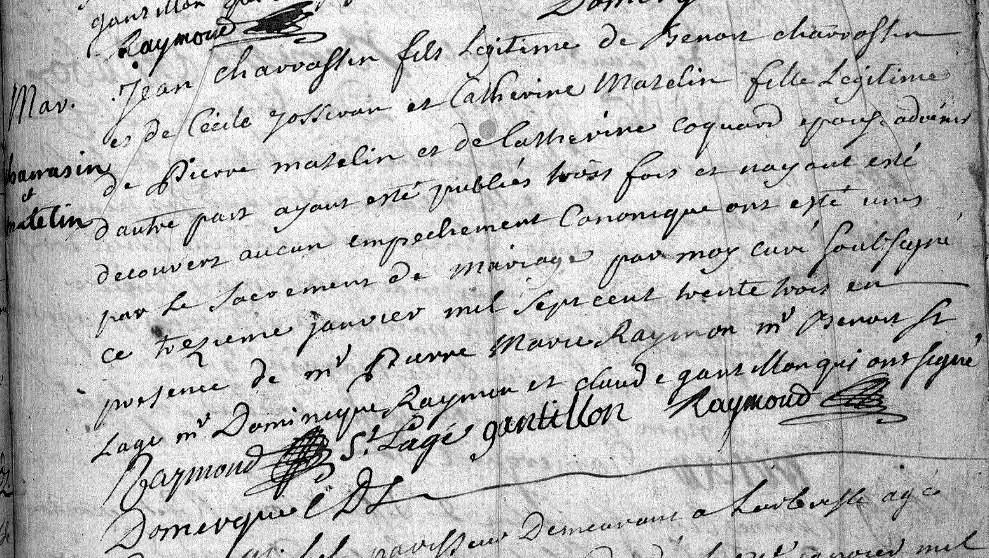 gantillon
Raymond
Mar.
Jean charvassin fils Legitime de Benoit charvassin
et de Cécile Josseran et Catherine Matelin fille Legitime
charvasin
et
matelin
de Pierre matelin et de Catherine coquard epouse advenir
d'autre part ayant esté publiés trois fois et nayant esté
decouvert aucun empechement Canonique ont esté unis
par Le Sacrement de Mariage par moy curé soubsigné
ce tresieme janvier mil sept cent trente trois en
presence de mr Pierre Marie Raymon mr Benoit St
Lage mr Dominique Raymon et claude gantillon qui ont signé
Raymond St. Lagé gantillon Raymond
Domergue C DS
parroissien Demeurant a agé
janvier mil